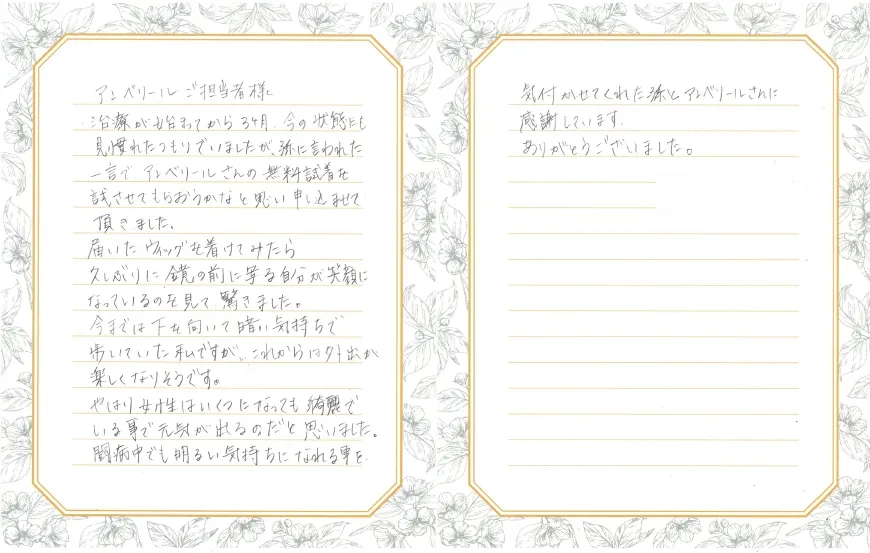 アンベリール ご担当者様
治療が始まってから3ヶ月、今の状態にも
見慣れたつもりでいましたが、孫に言われた
一言で、アンベリールさんの無料試着を
試させてもらおうかなと思い申し込ませて
頂きました。
届いたウィッグを着けてみたら
久しぶりに鏡の前に写る自分が笑顔に
なっているのを見て、驚きました。
今までは下を向いて暗い気持ちで
歩いていた私ですが、これからは外出が
楽しくなりそうです。
やはり女性はいくつになっても綺麗で
いる事で元気が出るのだと思いました。
闘病中でも明るい気持ちになれる事を
気付かせてくれた孫とアンベリールさんに
感謝しています。
ありがとうございました。